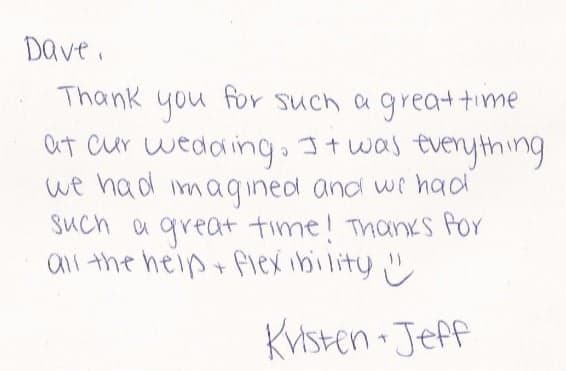 Dave,
Thank you for such a great time
at our wedding. It was everything
we had imagined and we had
such a great time! Thanks for
all the help + flexibility ü
Kristen + Jeff